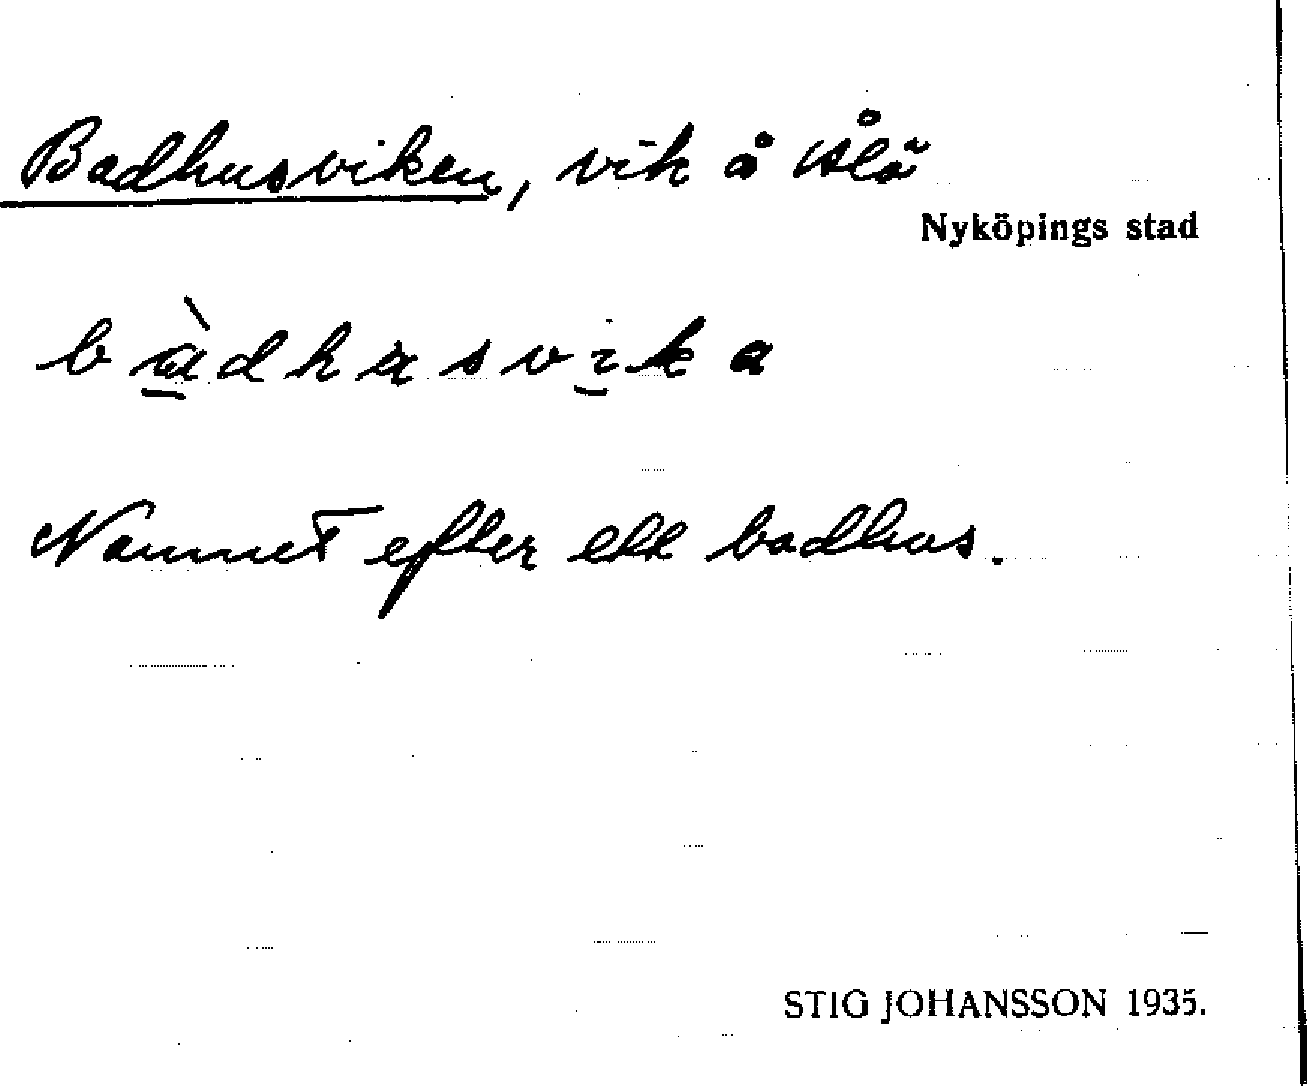 Badhusviken, vik å Ålö
Nyköpings stad
bàdhusvika
Namnet efter ett badhus.
STIG JOHANSSON 1935.